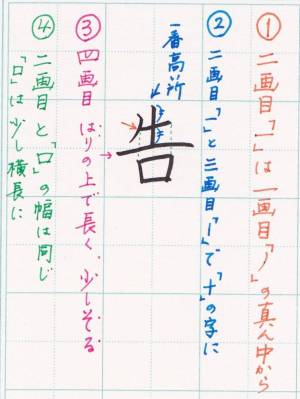 ① 二画目「一」は一画目「ノ」の真ん中から
② 二画目「一」と三画目「｜」で「十」の字に
一番高い所
告
③ 四画目 はりの上で長く、少しそる
④ 二画目と「口」の幅は同じ
「口」は少し横長に